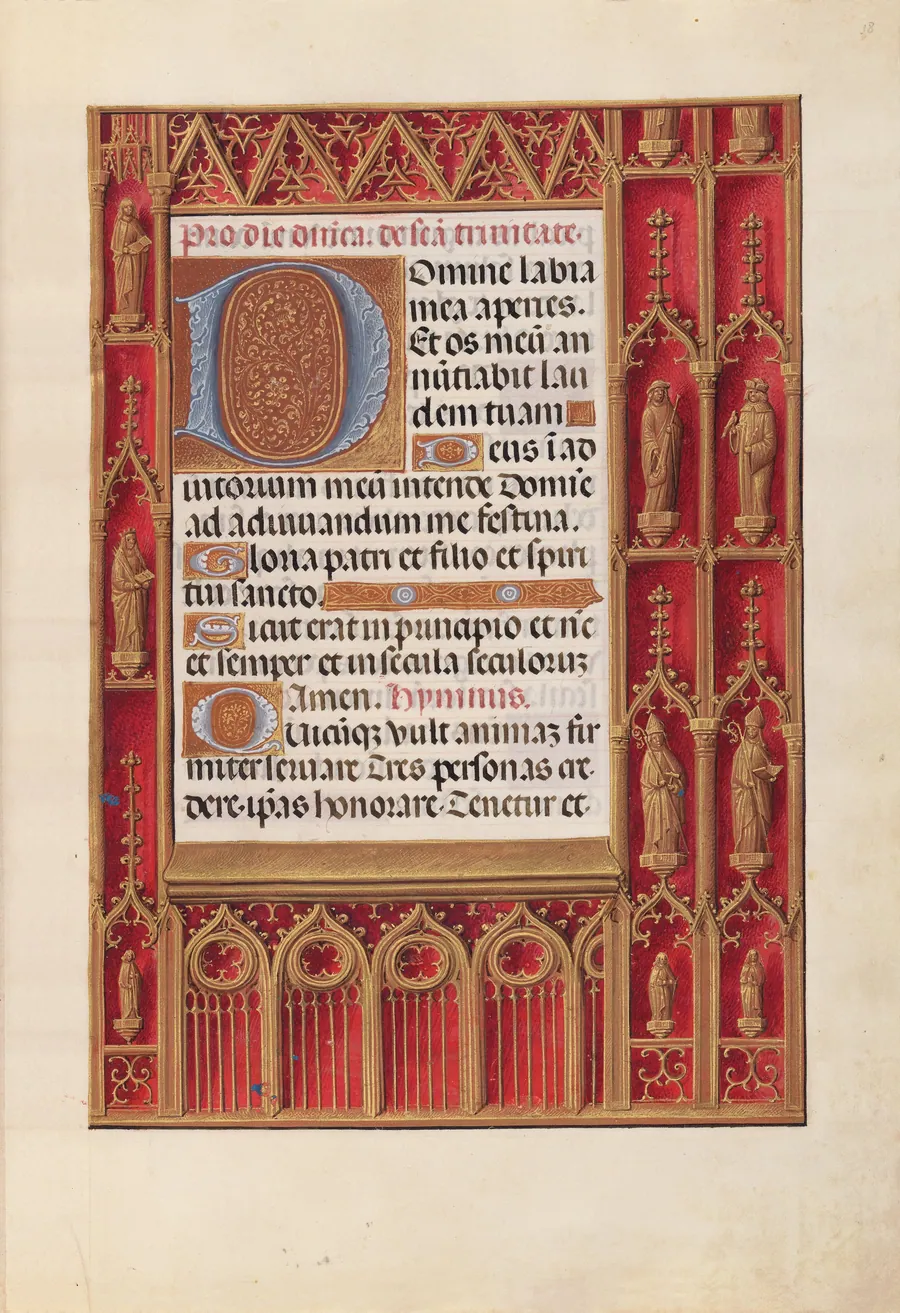 38
Pro die dnica. de scā trinitate.
Domine labia
mea aperies.
Et os meū an
nūtiabit lau
dem tuam
Deus ī ad
iutorium meū intende Domie
ad adiuuandum me festina.
Gloria patri et filio et spiri
tui sancto.
Sicut erat in principio et nc̄
et semper et in secula seculoruȝ
Amen. Hymnus.
Quicūqȝ vult animaȝ fir
miter seruare Tres personas cre-
dere. ip̄as honorare. Tenetur et.